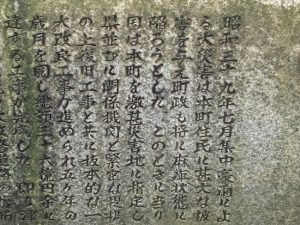 昭和三十九年七月集中豪雨によ
る大災害は本町住民に甚大な被
害を与え町政も将に麻痺状態に
陥ろうとした このときに当り
国は本町を激甚災害地に指定し
県並びに関係機関と緊密な提携
の上復旧工事と共に抜本的な一
大改良工事が進められ五ヶ年の
歳月を閲し総額三十六億円余に
達する工事が完成した